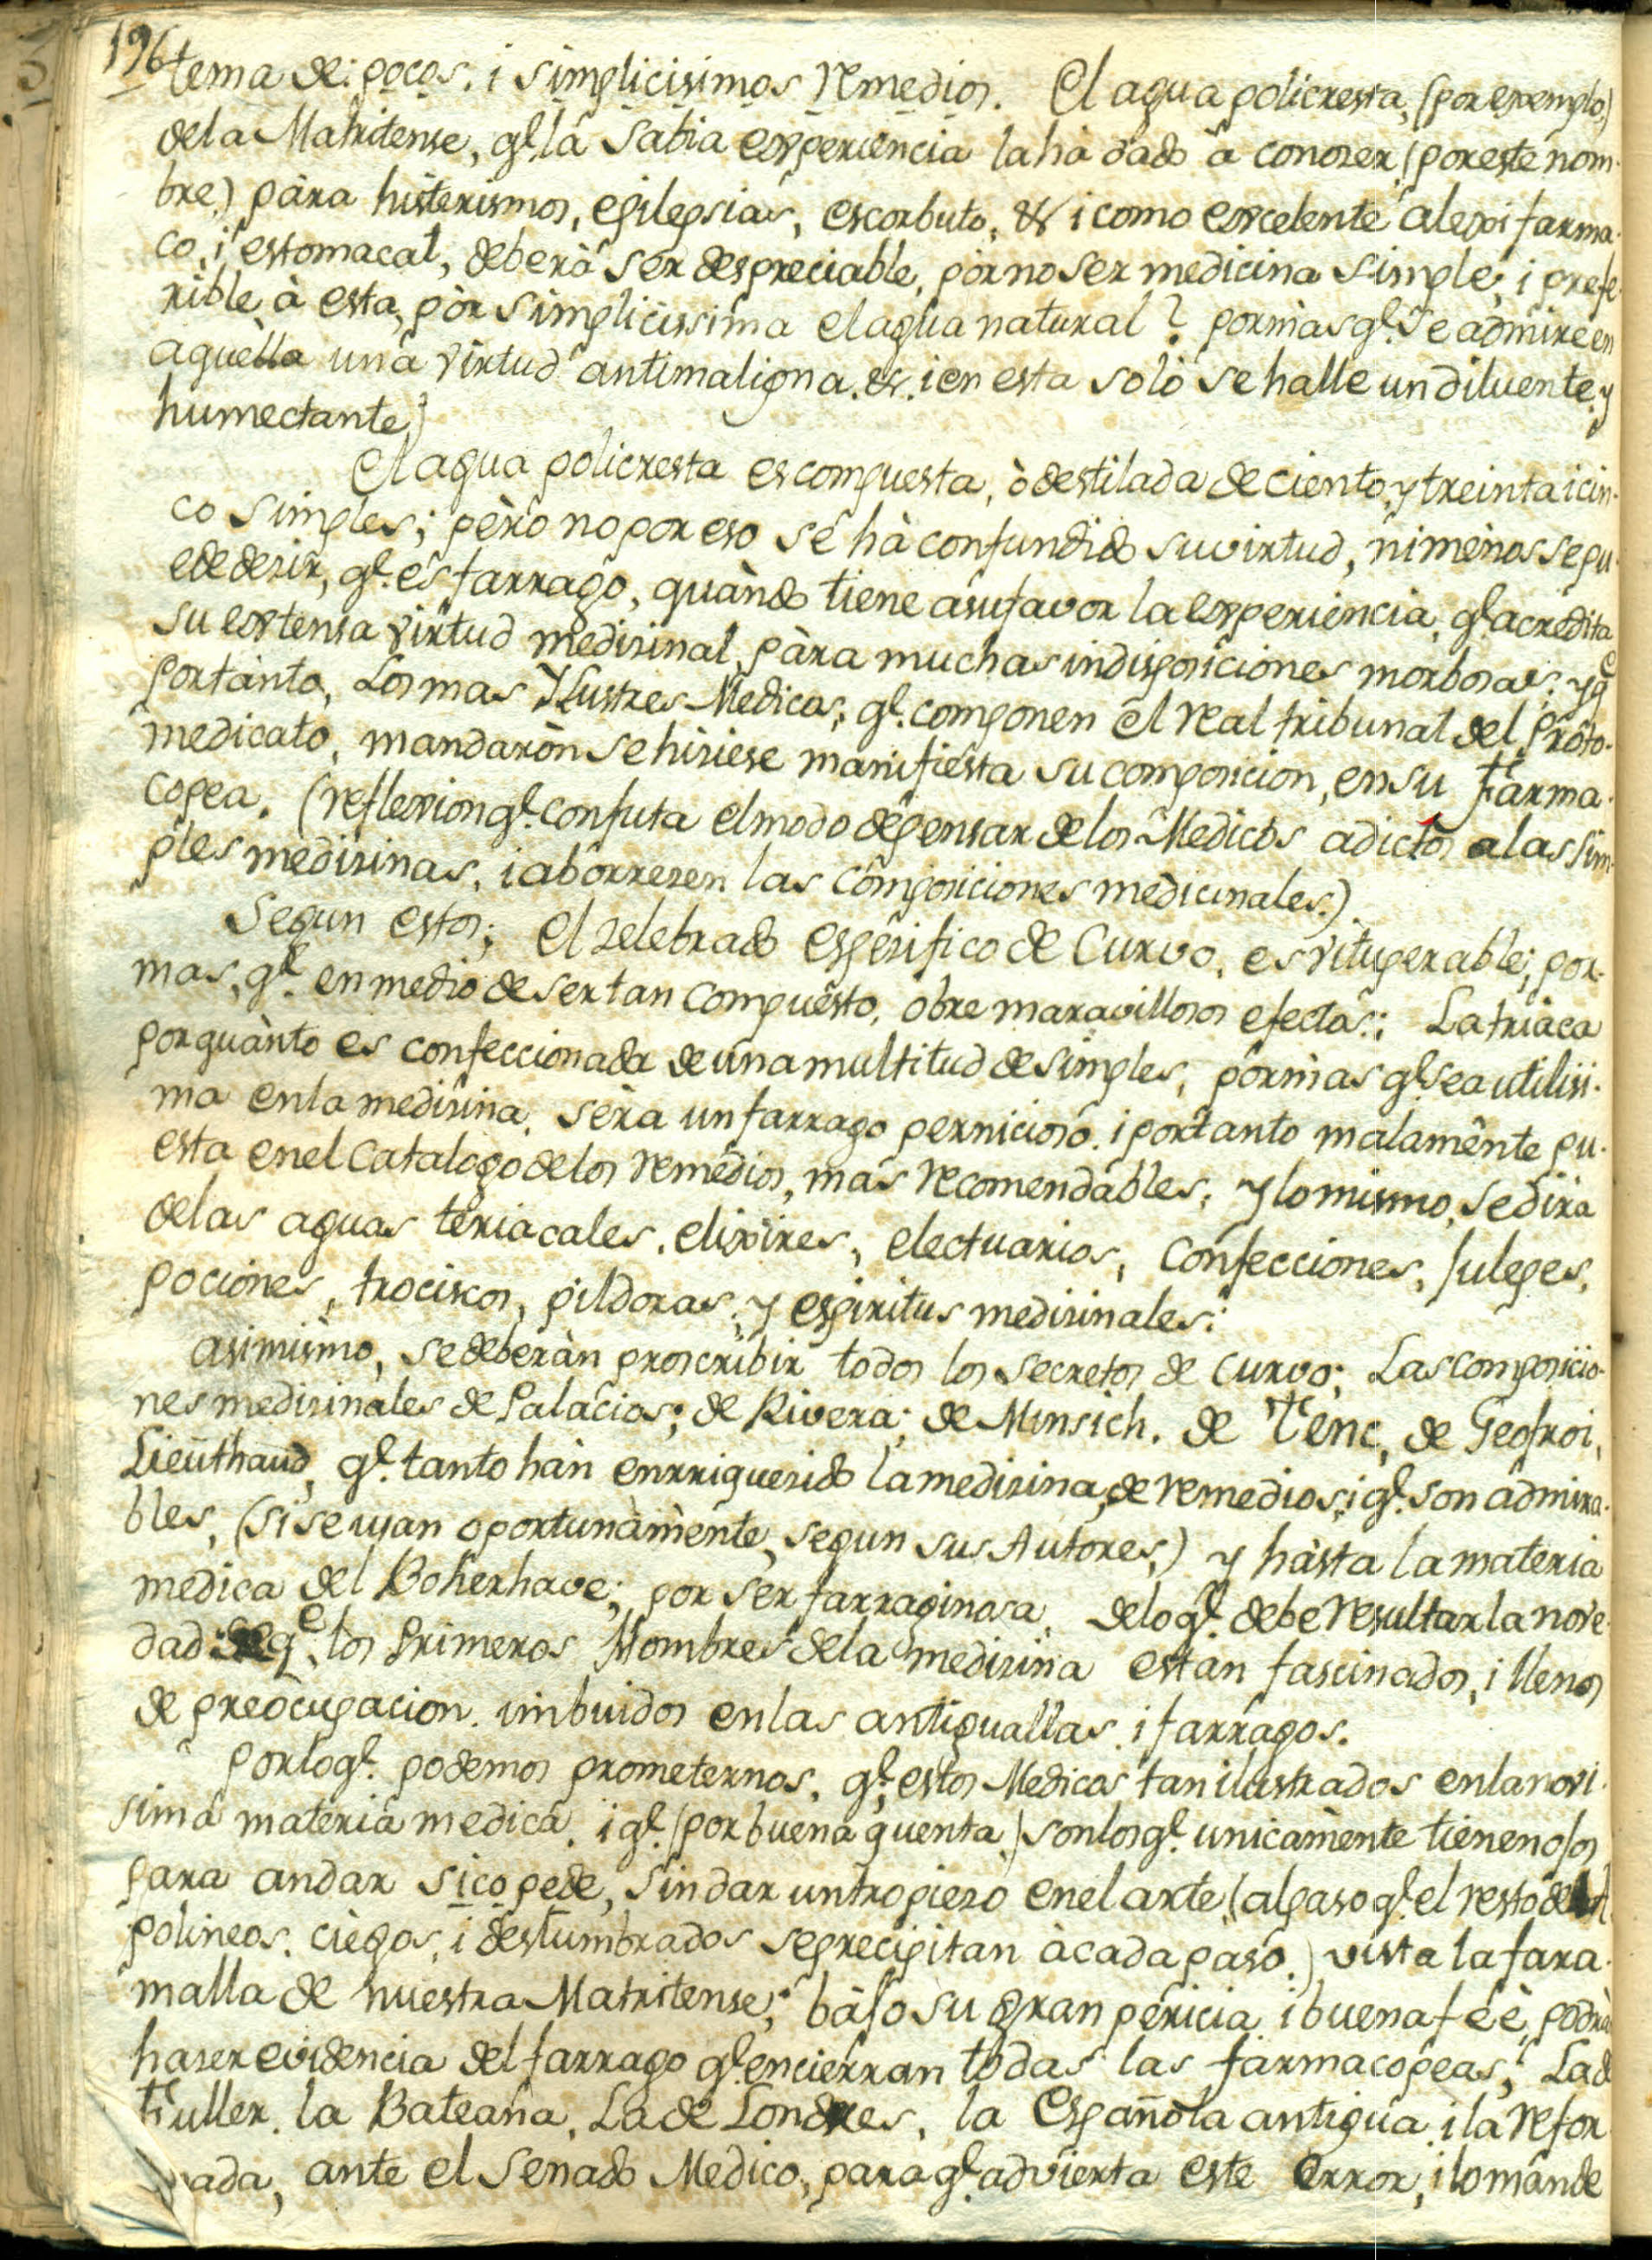 196
tema de: pocos, i simplicisimos remedios. El agua policresta, (por exemplo,)
de la Matritense, qe. la Sabia experiencia la hà dado à conoser, (por este nom-
bre) pàra histerismos, epilepsias, escorbuto, &. i como excelente alexifarma-
co, i estomacal, deberà ser despreciable, pòr no ser medicina simple, i prefe-
rible à esta, pòr simplicissima el agua natural? por màs qe. se admire en
aquella una virtud antimaligna. &. i en esta solo se halle un diluente, y
humectante?
El agua policresta es compuesta, ò destilada de ciento, y treinta i cin-
co simples; pèro no por eso se hà confundido su virtud, ni menos se pu-
ede desir, qe. es farrago, quàndo tiene a su favor la experiencia, qe. acredita
su extensa virtud medisinal, pàra muchas indisposiciones morbosas: y qe
por tanto, Los mas Ylustres Medicos, qe. componen el real tribunal del Proto-
medicato, mandaròn se hisiese manifiesta su composicion, en su Farma-
copea. (reflexion qe. confuta el modo de pensar de los Medicos adictos a las sim-
ples medisinas, i aborresen las composiciones medicinales.)
Segun estos; el zelebrado espesifico de Curvo, es vituperable; por-
mas, qe. en medio de ser tan compuesto, obre maravillosos efectos: La triaca
por quànto es confeccionada de una multitud de simples, por màs qe. sea utilisi-
ma en la medisina, serà un farrago pernicioso. i por tanto malamente pu-
esta en el Catalogo de los remedios, mas recomendables; y lo mismo, se dirà
de las aguas teriacales, elixires, electuarios, confecciones, Julepes,
pociones, trociscos, pildoras, y espiritus medisinales:
asimismo, se deberàn proscribir todos los secretos de Curvo; Las composicio-
nes medisinales de Palacios; de Rivera; de Minsich, de Tenc, de Geofroi,
Lieuthaud, qe. tanto hàn enrriquesido la medisina, de remedios; i qe. son admira-
bles, (si se usan oportunamente, segun sus Autores,) y hàsta la materia
medica del Boherhave; por ser farraginosa, de lo qe. debe resultar la nove-
dad qe. los Primeros Hombres de la medisina estan fascinados, i llenos
de preocupacion. imbuidos en las antiguallas, i farragos.
Por lo qe. podemos prometernos, qe. estos Medicos tan ilustrados en la novi-
sima materia medica, i qe. (por buena quenta,) son los qe. unicamente tienen ojos
para andar sico pede, sin dar un tropiezo en el arte (al paso qe. el resto de
polineos, ciegos, i deslumbrados se precipitan à cada paso.) vista la fara-
malla de nuestra Matritense; bàjo su gran pericia i buena feè, podrà
haser evidencia del farrago qe. encierran todas las farmacopeas, La de
Fuller, la Bateana, La de Londres, la Española antigua, i la refor-
mada, ante el Senado Medico, para qe. advierta este error, i lo mande